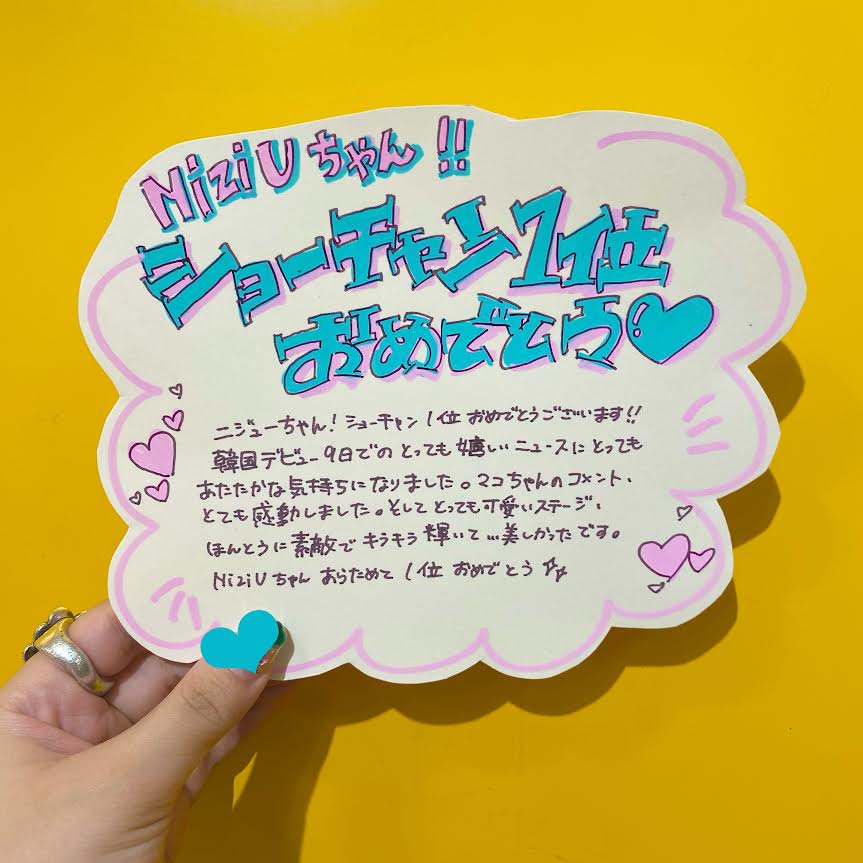 NiziUちゃん!!
ショーチャン1位
おめでとう
ニジューちゃん!ショーチャン1位おめでとうございます!!
韓国デビュー9日でのとっても嬉しいニュースにとっても
あたたかな気持ちになりました。マコちゃんのコメント、
とても感動しました。そしてとっても可愛いステージ、
ほんとうに素敵でキラキラ輝いて…美しかったです。
NiziUちゃんあらためて1位おめでとう